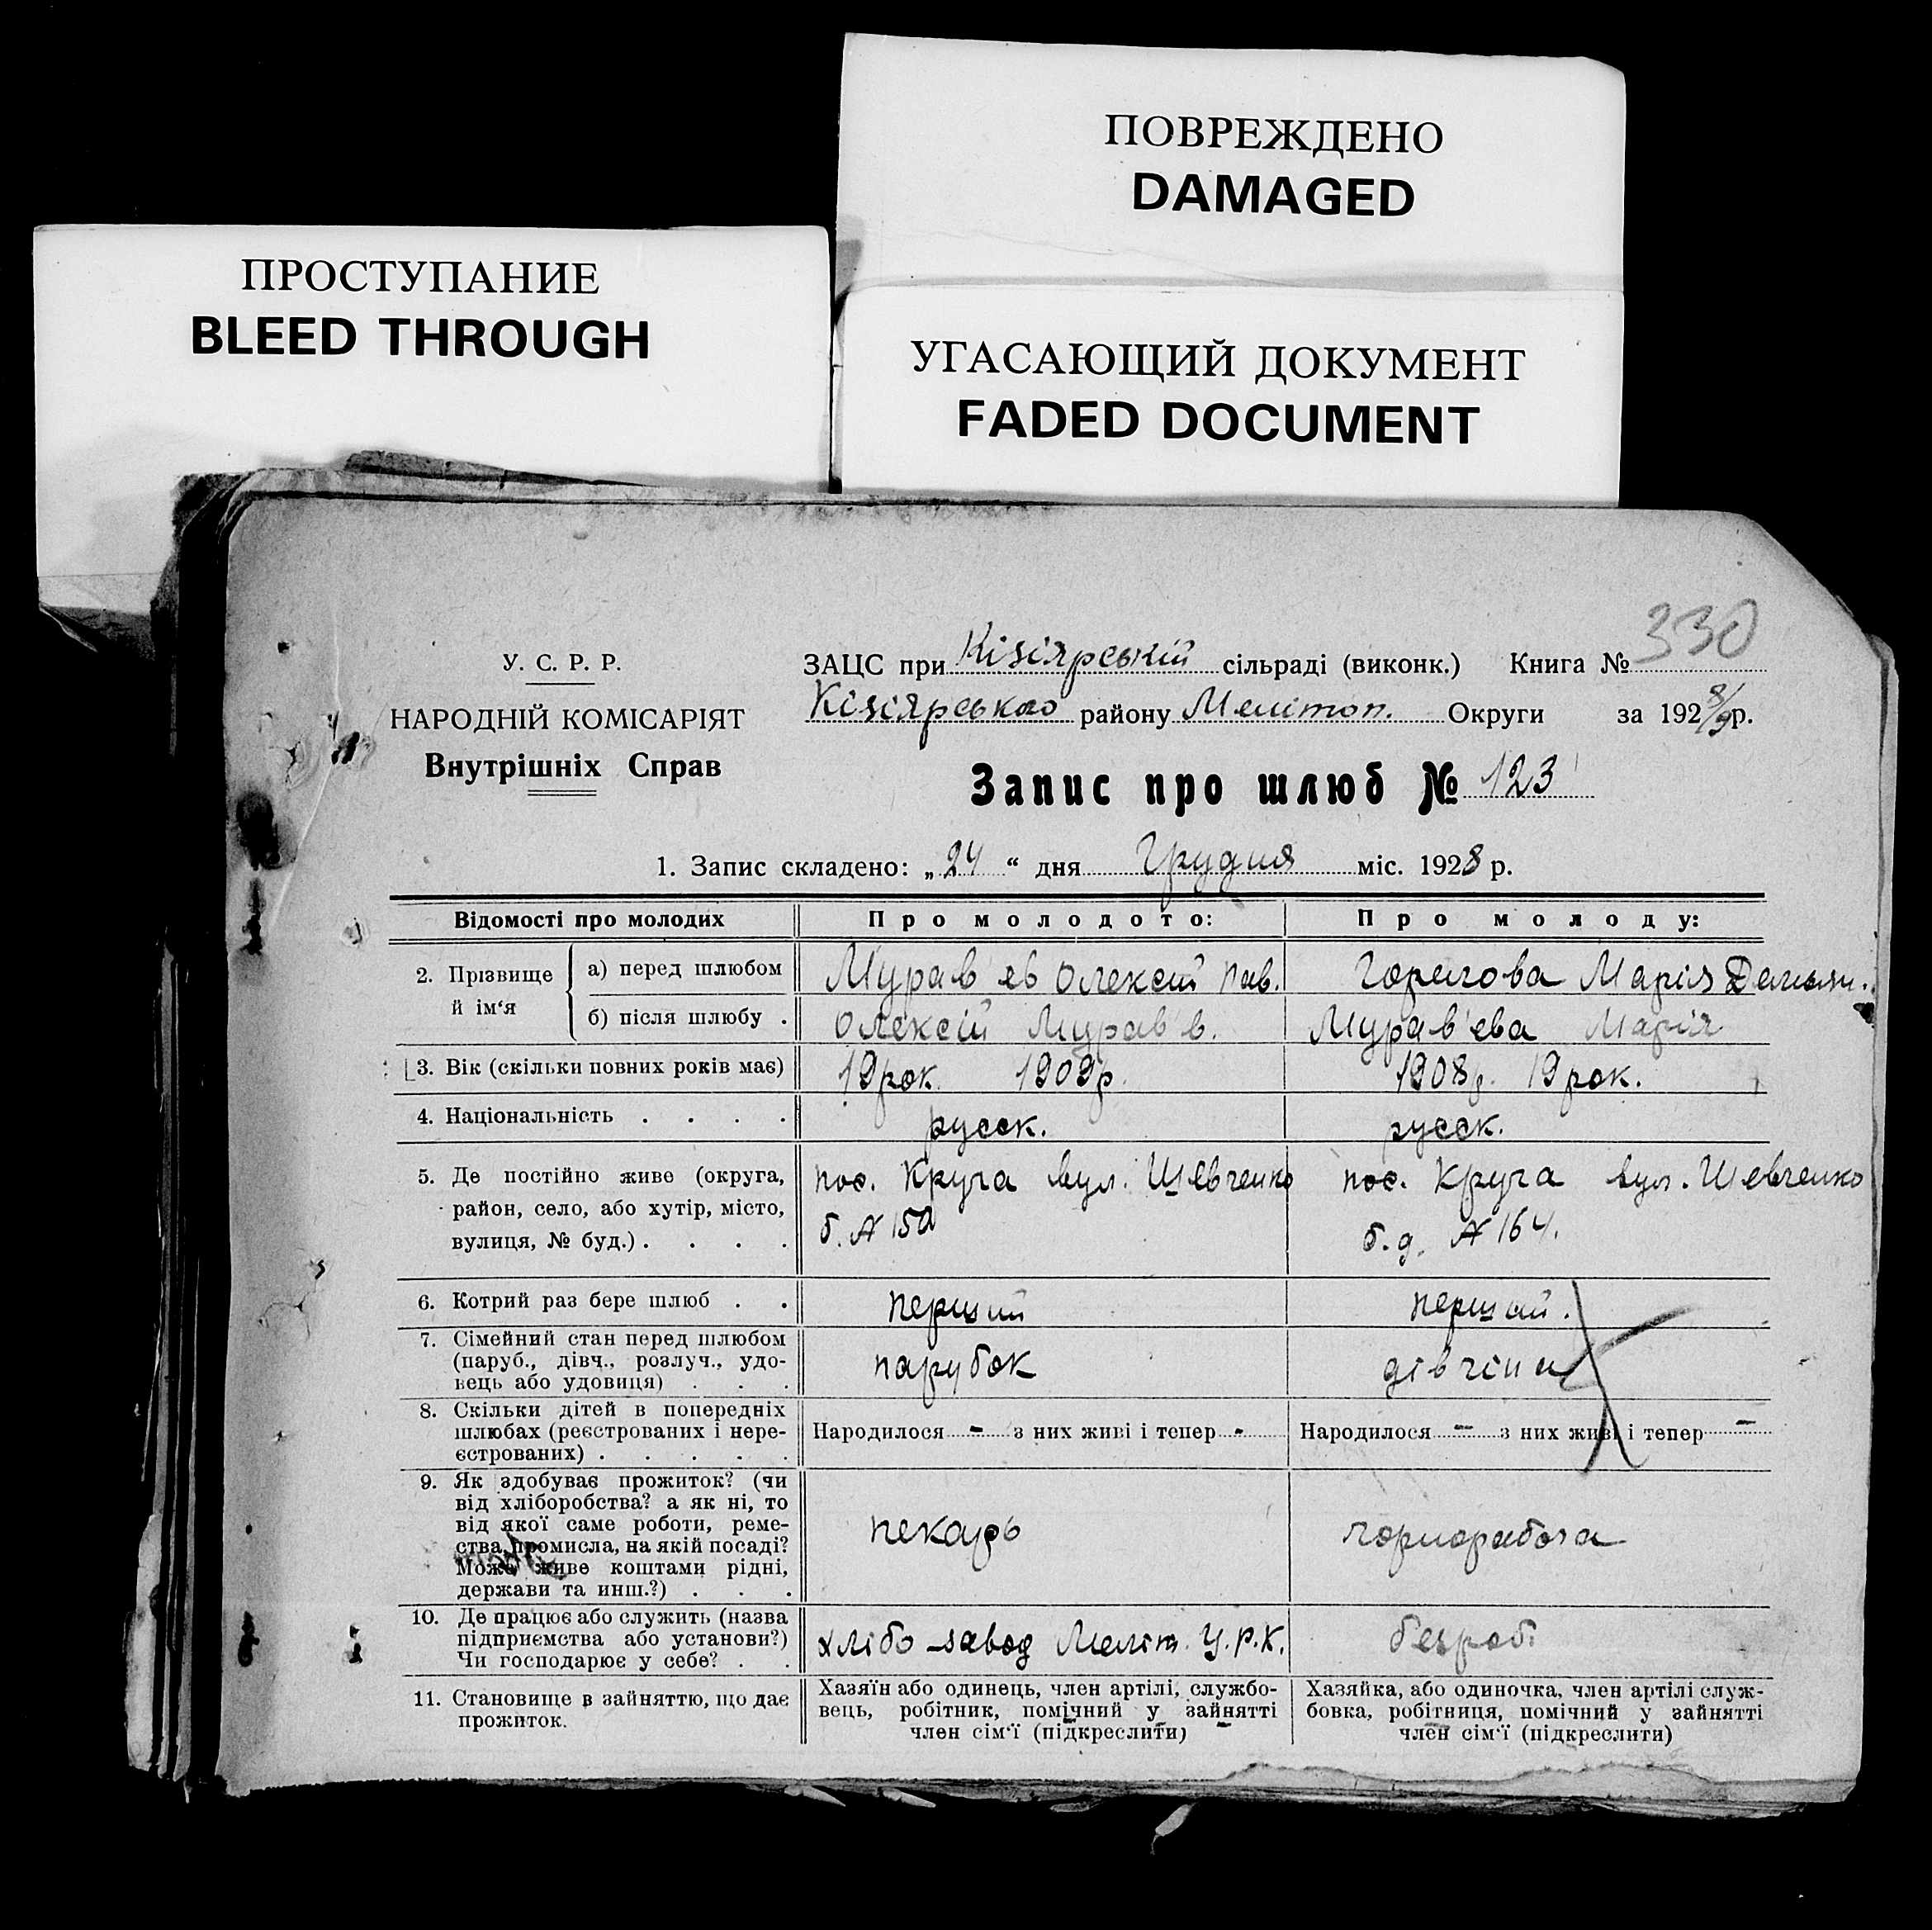 ПОВРЕЖДЕНО
DAMAGED
ПРОСТУПАНИЕ
BLEED THROUGH
УГАСАЮЩИЙ ДОКУМЕНТ
FADED DOCUMENT
330
У. С. Р. Р.
ЗАЦС при Кізіярській сільраді (виконк.) Книга №
НАРОДНІЙ КОМІСАРІЯТ
Кізіярського району Мелітоп. Округи за 1928/9 р.
Внутрішніх Справ
Запис про шлюб № 123
1. Запис складено: „24“ дня Грудня міс. 1928 р.
Відомості про молодих
Про молодото:
Про молоду:
2. Прізвище й ім‘я
а) перед шлюбом
Мурав'єв Олексій Пав.
Горлгова Марія Демьян.
б) після шлюбу .
Олексій Мурав'в.
Мурав'ева Марія
3. Вік (скільки повних років має)
19 рок. 1909 р.
1908 р. 19 рок.
4. Національність . . . .
русск.
русск.
5. Де постійно живе (округа,
район, село, або хутір, місто,
вулиця, № буд.) . . . .
пос. Круча вул. Шевченко
б. № 150
пос. Круча вул. Шевченко
б.д. № 164.
6. Котрий раз бере шлюб . .
перший
перший.
7. Сімейний стан перед шлюбом
(паруб., дівч., розлуч., удо-
вець або удовиця) . . .
парубок
дівчина
8. Скільки дітей в попередніх
шлюбах (реєстрованих і нере-
єстрованих) . . . . .
Народилося - з них живі і тепер -
Народилося - з них живі і тепер -
9. Як здобуває прожиток? (чи
від хліборобства? а як ні, то
від якої саме роботи, реме-
ства, промисла, на якій посаді?
Може живе коштами рідні,
держави та инш.?) . . .
пекарь
чорнорабоча
10. Де працює або служить (назва
підприємства або установи?)
Чи господарює у себе? . .
хлібо-завод Меліт. У.р.к.
безроб.
11. Становище в зайняттю, що дає
прожиток.
Хазяїн або одинець, член артілі, службо-
вець, робітник, помічний у зайнятті
член сім‘ї (підкреслити)
Хазяйка, або одиночка, член артілі служ-
бовка, робітниця, помічний у зайнятті
член сім‘ї (підкреслити)